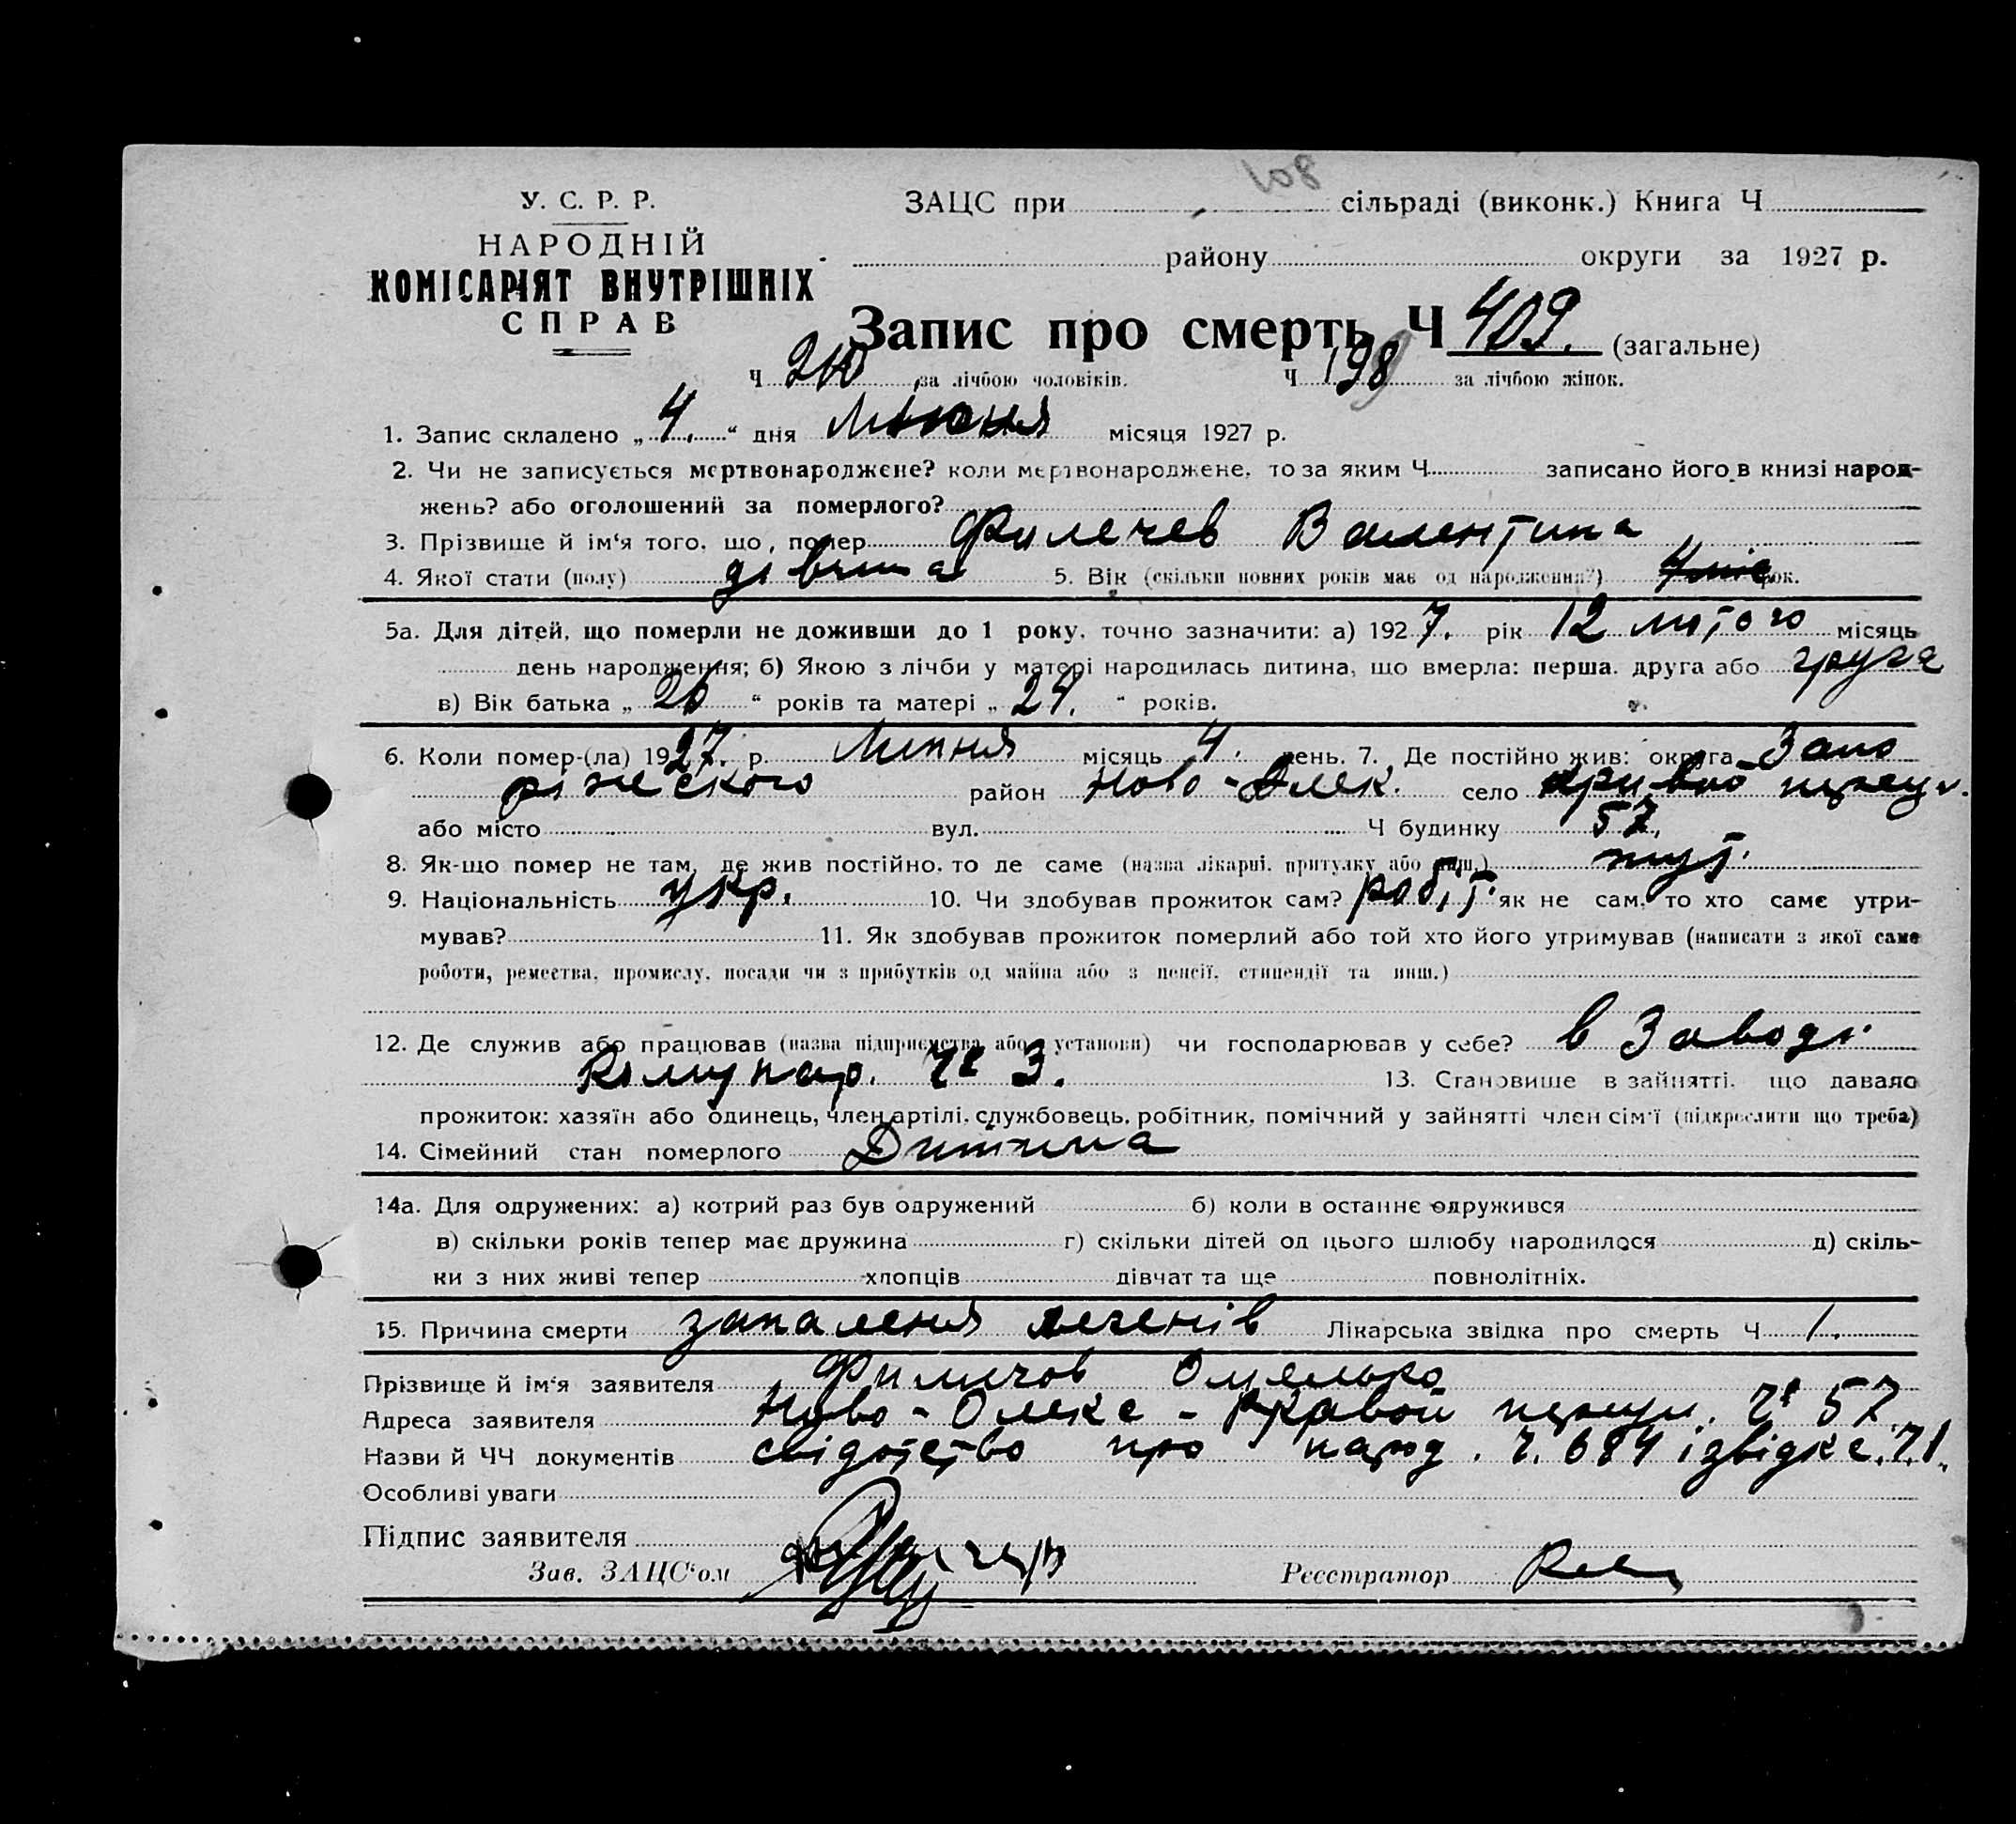 108
У. С. Р. Р.
НАРОДНІЙ
КОМІСАРІЯТ ВНУТРІШНІХ
СПРАВ
ЗАЦС при сільраді (виконк.) Книга Ч
району округи за 1927 р.
Запис про смерть Ч 409. (загальне)
Ч 210 за лічбою чоловіків. Ч 198 за лічбою жінок.
1. Запис складено „ 4. “ дня місяця 1927 р.
2. Чи не записується мертвонароджене? коли мертвонароджене, то за яким Ч записано його в книзі народ-
жень? або оголошений за померлого?
3. Прізвище й ім'я того, що помер Филечев Валентина
4. Якої стати (полу) дівчина 5. Вік (скільки повних років має од народження?) 4 міс рок.
5а. Для дітей, що померли не доживши до 1 року, точно зазначити: а) 1927. рік 12 лютого місяць
день народження; б) Якою з лічби у матері народилась дитина, що вмерла: перша, друга або друга
в) Вік батька „ 26 “ років та матері „ 24. “ років.
6. Коли помер-(ла) 1927. р. Липня місяць 4. день. 7. Де постійно жив: округа Запо
ріжського район Ново-Олек. село Кривой
або місто вул. Ч будинку 57.
8. Як-що помер не там, де жив постійно, то де саме (назва лікарні, притулку або инш.) тут.
9. Національність укр. 10. Чи здобував прожиток сам? робіт. як не сам, то хто саме утри-
мував? 11. Як здобував прожиток померлий або той хто його утримував (написати з якої саме
роботи, ремества, промислу, посади чи з прибутків од майна або з пенсії, стипендії та инш.)
12. Де служив або працював (назва підприємства або установи) чи господарював у себе? в Заводі
Комунар. Ч 3. 13. Становище в зайнятті, що давало
прожиток: хазяїн або одинець, член артілі, службовець, робітник, помічний у зайнятті член сім'ї (підкреслити що треба)
14. Сімейний стан померлого Дитина
14а. Для одружених: а) котрий раз був одружений б) коли в останнє одружився
в) скільки років тепер має дружина г) скільки дітей од цього шлюбу народилося д) скіль-
ки з них живі тепер хлопців дівчат та ще повнолітніх.
15. Причина смерти запаленя легенів Лікарська звідка про смерть Ч 1.
Прізвище й ім'я заявителя Филичов Омелько
Адреса заявителя Ново-Олекс - Кравой Ч 57
Назви й ЧЧ документів свідотство про народ. ч. 684 і звідка. ч. 1.
Особливі уваги
Підпис заявителя
Зав. ЗАЦС'ом Реєстратор